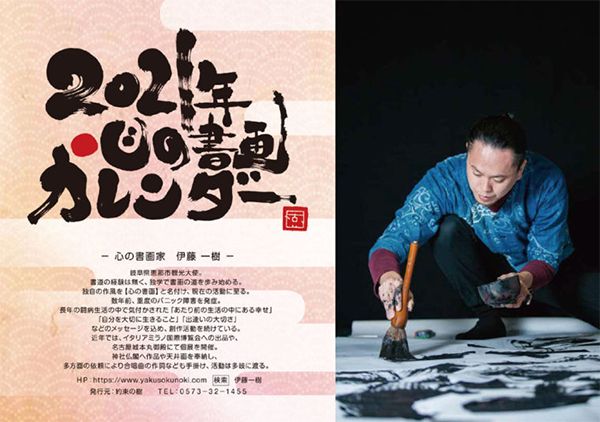 2021年
心の書画
カレンダー
― 心の書画家　伊藤 一樹 ―
岐阜県恵那市観光大使。
書道の経験は無く、独学で書画の道を歩み始める。
独自の作風を【心の書画】と名付け、現在の活動に至る。
数年前、重度のパニック障害を発症。
長年の闘病生活の中で気付かされた「あたり前の生活の中にある幸せ」
「自分を大切に生きること」「出逢いの大切さ」
などのメッセージを込め、創作活動を続けている。
近年では、イタリアミラノ国際博覧会への出品や、
名古屋城本丸御殿にて個展を開催。
神社仏閣へ作品や天井画を奉納し、
多方面の依頼により合唱曲の作詞なども手掛け、活動は多岐に渡る。
HP：https://www.yakusokunoki.com 検索 伊藤一樹
発行元：約束の樹　TEL：0573-32-1455